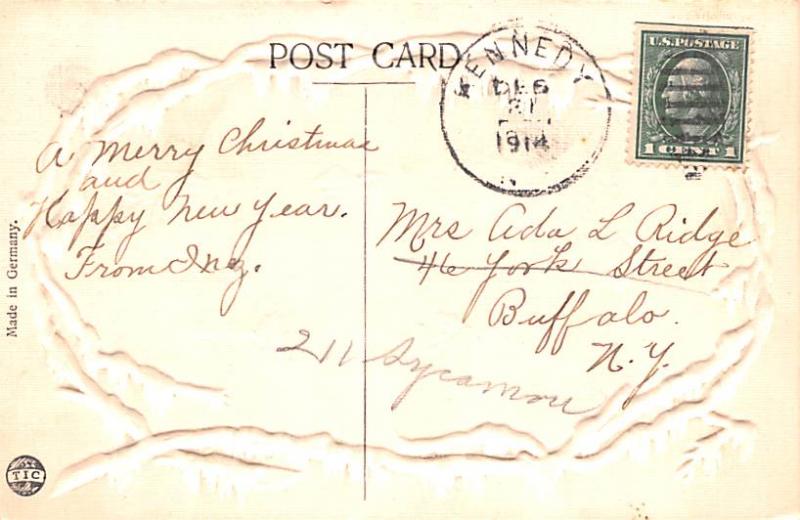 POST CARD
KENNEDY
DEC
21
1914
N
U.S. POSTAGE
1 CENT 1
A Merry Christmas
and
Happy New Year.
From Inez.
Mrs Ada L Ridge
46 York Street
Buffalo.
N.Y.
211 Sycamore
Made in Germany.
TIC